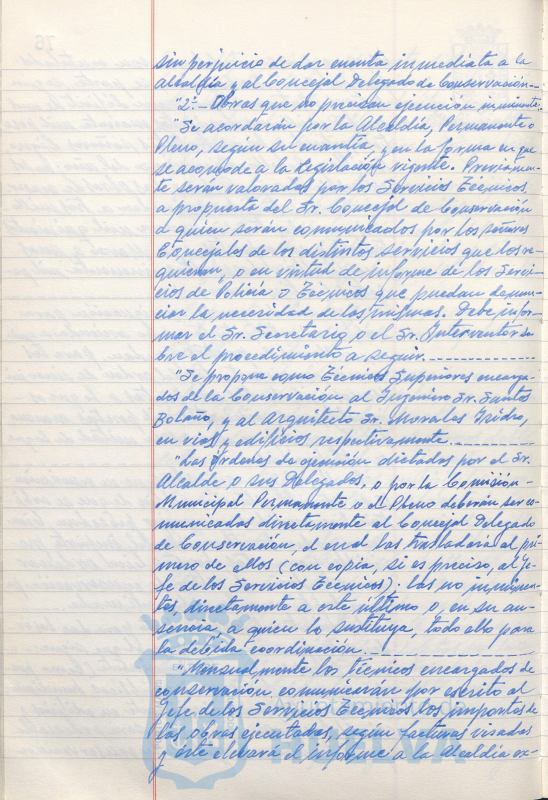 sin perjuicio de dar cuenta inmediata a la
alcaldía y al Concejal Delegado de Conservación.-
"2º.- Obras que no precisan ejecución inminente.
"Se acordarán por la Alcaldía, Permanente o
Pleno, según su cuantía, y en la forma en que
se acomode a la legislación vigente. Previamen-
te serán valoradas por los Servicios Técnicos
a propuesta del Sr. Concejal de Conservación
a quien serán comunicados por los señores
Concejales de los distintos servicios que los re-
quieran, o en virtud de informe de los Servi-
cios de Policía o Técnicos que puedan denun-
ciar la necesidad de las mismas. Debe infor-
mar el Sr. Secretario o el Sr. Interventor so-
bre el procedimiento a seguir.
"Se propone como Técnicos Superiores encarga-
dos de la Conservación al Ingeniero Sr. Santos
Bolaño, y al Arquitecto Sr. Morales Isidro,
en vías y edificios respectivamente.
"Las órdenes de ejecución dictadas por el Sr.
Alcalde o sus Delegados, o por la Comisión-
Municipal Permanente o el Pleno deberán ser co-
municadas directamente al Concejal Delegado
de Conservación, el cual las trasladará al pri-
mero de ellos (con copia, si es preciso, al Je-
fe de los Servicios Técnicos). Las no inminen-
tes, directamente a este último o, en su au-
sencia, a quien lo sustituya, todo ello para
la debida coordinación.
"Mensualmente los técnicos encargados de
conservación, comunicarán por escrito al
Jefe de los Servicios Técnicos los importes de
las obras ejecutadas, según facturas visadas
y éste elevará el informe a la Alcaldía ex-